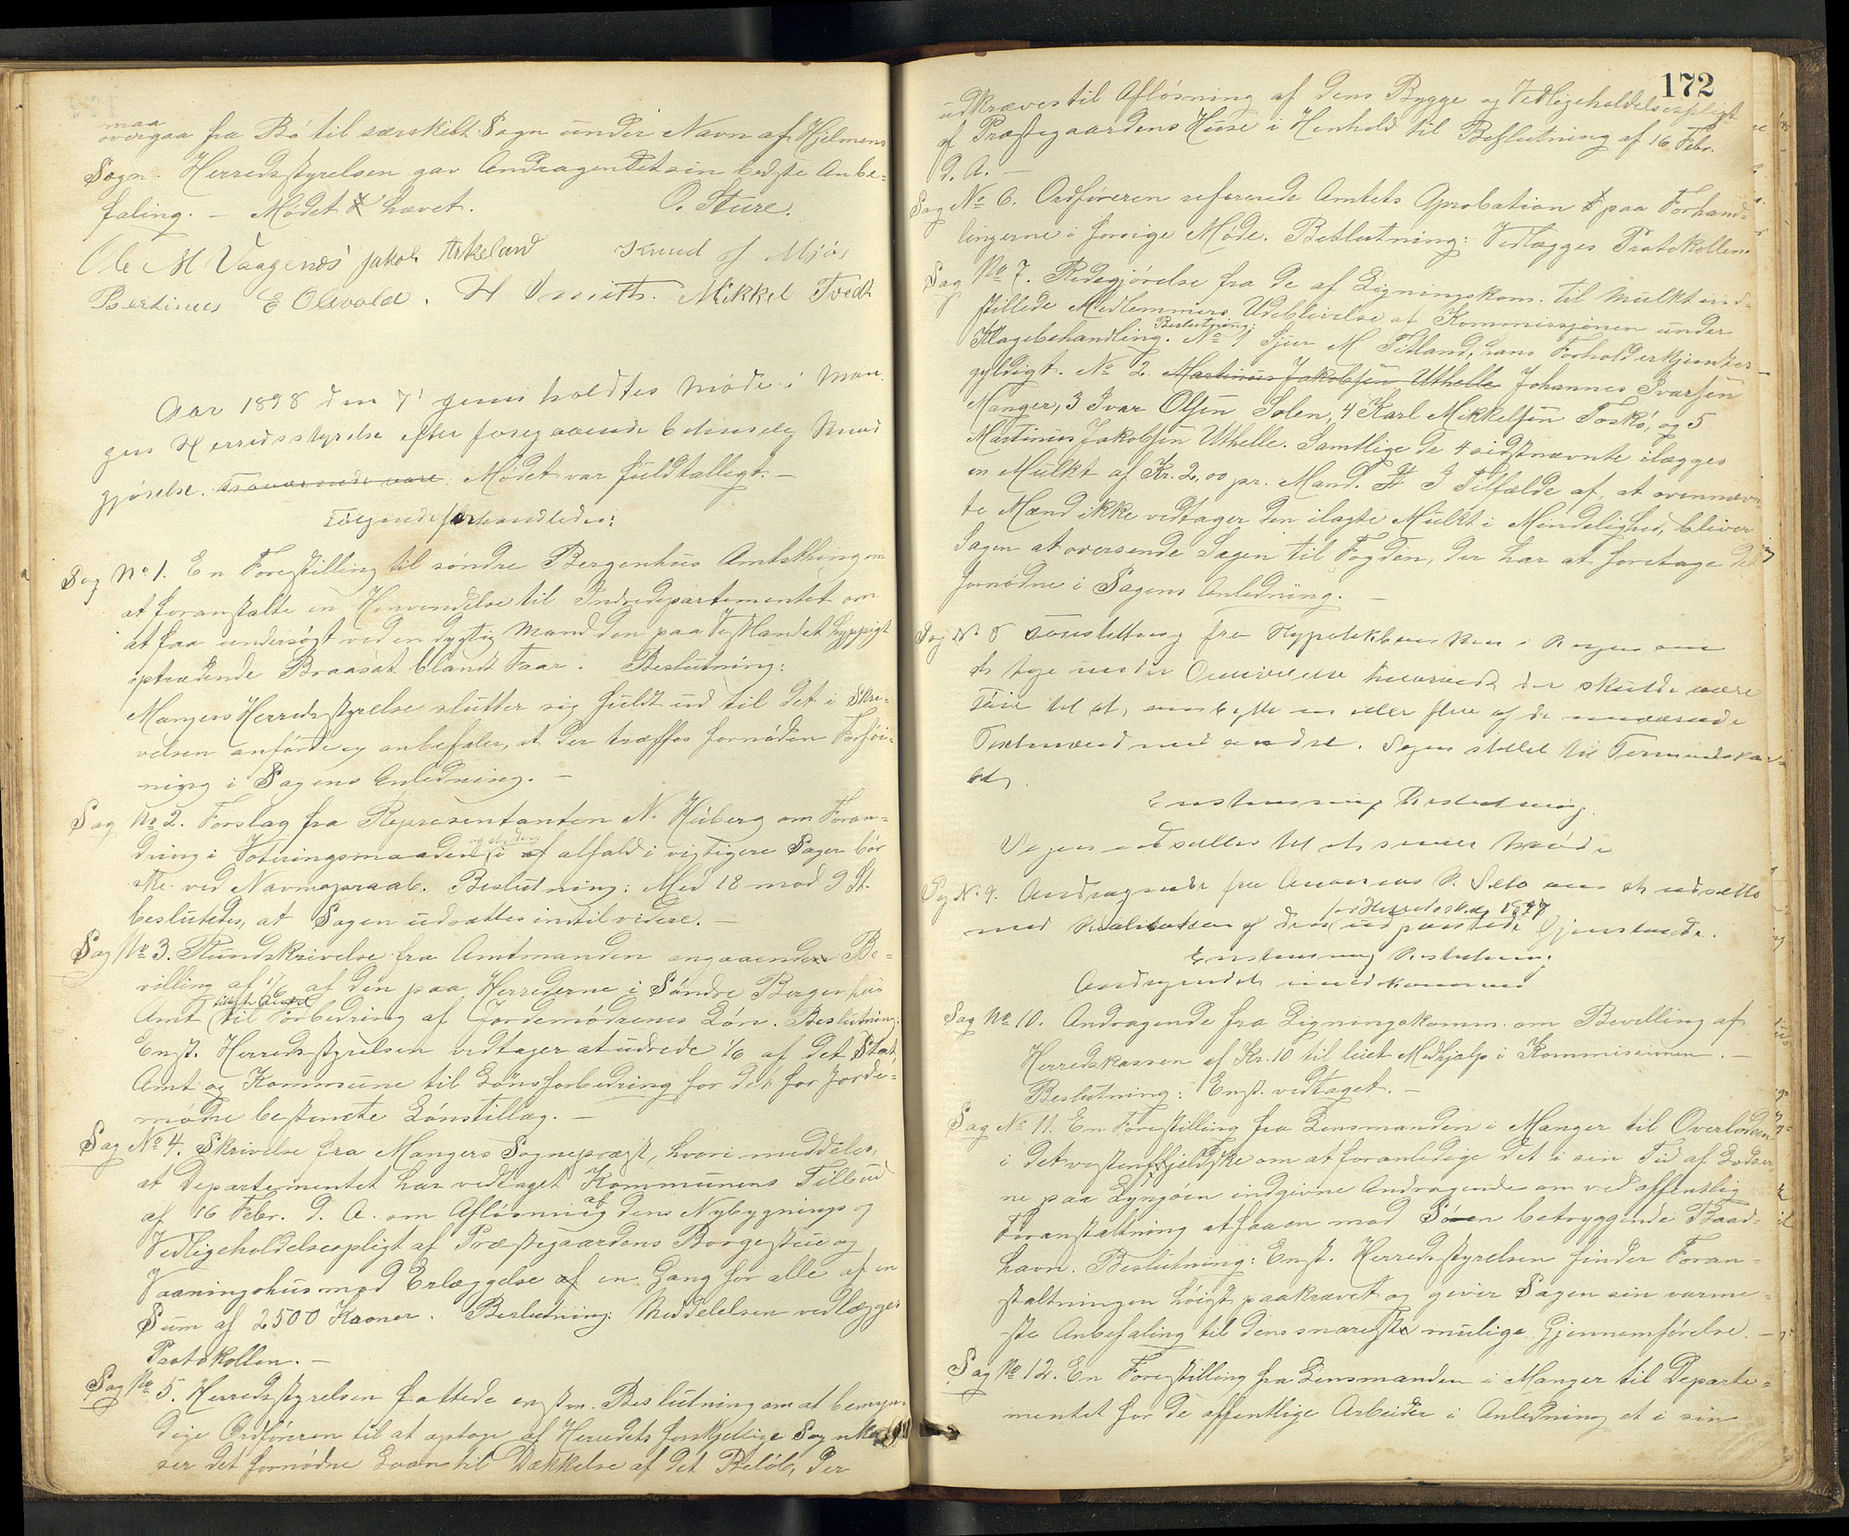 maa
overgaa fra Bø til særskilt Sogn under Navn af Hjelmens
Sogn. Herredsstyrelsen gav Andragendet sin bedste Anbe-
faling. – Mødet hævet. O. Sture.
Ole M Vaagenæs Jakob Askeland Knud J Mjøs
Bertinus E Olsvold. H Smith. Mikkel Tvedt
Aar 1898 den 7' juni holdtes Møde i Man
gers Herredsstyrelse efter foregaaende betimelig kund
gjørelse. Fraværende vare Mødet var fuldtalligt. –
Følgende forhandledes:
Sag No 1. En Forestilling til søndre Bergenhus Amtsthing om
at foranstalte en Henvendelse til Indredepartementet om
at faa undersøgt ved en dygtig Mand den paa Vestlandet hyppigt
optrædende Braasot blandt Faar. Beslutning:
Mangers Herredsstyrelse slutter sig fuldt ud til det i Skri-
velsen anførte og anbefaler, at der træffes fornøden Forføi-
ning i Sagens Anledning. –
Sag No 2. Forslag fra Repræsentanten N. Húberg om Foran-
og at den
dring i Voteringsmaaden, i alfald i vigtigere Sager bør
ske ved Navneopraab. Beslutning: Med 18 mod 9 St.
besluttedes, at Sagen udsættes indtil videre. –
Sag No 3. Rundskrivelse fra Amtmanden angaaende Be-
villing af 1/6 af den paa Herrederne i Søndre Bergenhus
Amt til Forbedring af Jordemødrenes Løn. Beslutning:
Enst. Herredsstyrelsen vedtager at udrede 1/6 af det Stat,
Amt og Kommune til Lønsforbedring for det for Jorde-
mødre bestemte Lønstillæg. –
Sag No 4. Skrivelse fra Mangers Sogneprest, hvori meddeles,
at Departementet har vedtaget Kommunens Tilbud
af 16 Febr. d. A. om Afløsning af dens Nybygnings og
Vedligeholdelsespligt af Præstegaardens Borgestue og
Vaaningshus mod Erlæggelse en Gang for alle af en
Sum af 2500 Kroner. Beslutning: Meddelelsen vedlægges
Protokollen. –
Sag No 5. Herredsstyrelsen fattede enstm. Beslutning om at bemyn-
dige Ordføreren til at optage af Herredets forskjellige Sognekas-
ser det fornødne Laan til Dækkelse af det Beløb, der
172
udkræves til Afløsning af dens Bygge og Vedligeholdelsespligt
af Præstegaardens Huse i Henhold til Beslutning af 16 Febr.
d. A. –
Sag No 6. Ordføreren refererede Amtets Aprobation paa Forhand-
lingerne i forrige Møde. Beslutning: Vedlægges Protokollen.
Sag No 7. Redegjørelse fra de af Ligningskom. til Mulkt ind-
stillede Medlemmers Udeblivelse af Kommissjonen under
Beslutning:
Klagebehandling. No 1 Sjur M Titland, hans Forhold erkjendes
gyldigt. No 2. Martinus Jakobsen Uthelle Johannes Ivarsen
Manger, 3 Ivar Olsen Solen, 4 Karl Mikkelsen Toskø, og 5
Martinus Jakobsen Uthelle. Samtlige de 4 sidstnævnte ilægges
en Mulkt af Kr. 2,00 pr. Mand. I Tilfælde af, at ovennævn-
te Mænd ikke vedtager den ilagte Mulkt i Mindelighed, bliver
Sagen at oversende Sagen til Fogden, der har at foretage det
fornødne i Sagens Anledning. –
Sag No 8 Forestilling fra Hypothekbanken i Bergen om
at tage under Overveielse hvorvidt der skulde være
Føie til at ombytte en eller flere af de nuværende
Taxtmænd med andre. Sagen stillet til Formandskab-
et,
Enstemmig Beslutning,
Sagen udsættes til et senere Møde
Sag No 9. Andragende fra A. Sæbø om at udsætte
for Herredsskat 1897
med Realisation af den udpantede Gjenstande.
Enstemmig Beslutning.
Andragendet imødekommes
Sag No 10. Andragende fra Ligningskomm. om Bevilling af
Herredskassen af Kr. 10 til leiet Medhjælp i Kommissionen. –
Beslutning: Enst. vedtaget. –
Sag No 11. En Forestilling fra Lensmanden i Manger til Overlodsen
i det vestenfjeldske om at foranledige det i sin Tid af Lodser
ne paa Lyngøen indgivne Andragende om ved offentlig
Foranstaltning at faa en mod Søen betryggende Baad-
havn. Beslutning: Enst. Herredsstyrelsen finder Foran-
staltningen høigt paakrævet og giver Sagen sin varme-
ste Anbefaling til dens snarest mulige Gjennemførelse. –
Sag No 12. En Forestilling fra Lensmanden i Manger til Departe-
mentet for de offentlige Arbeider i Anledning et i sin